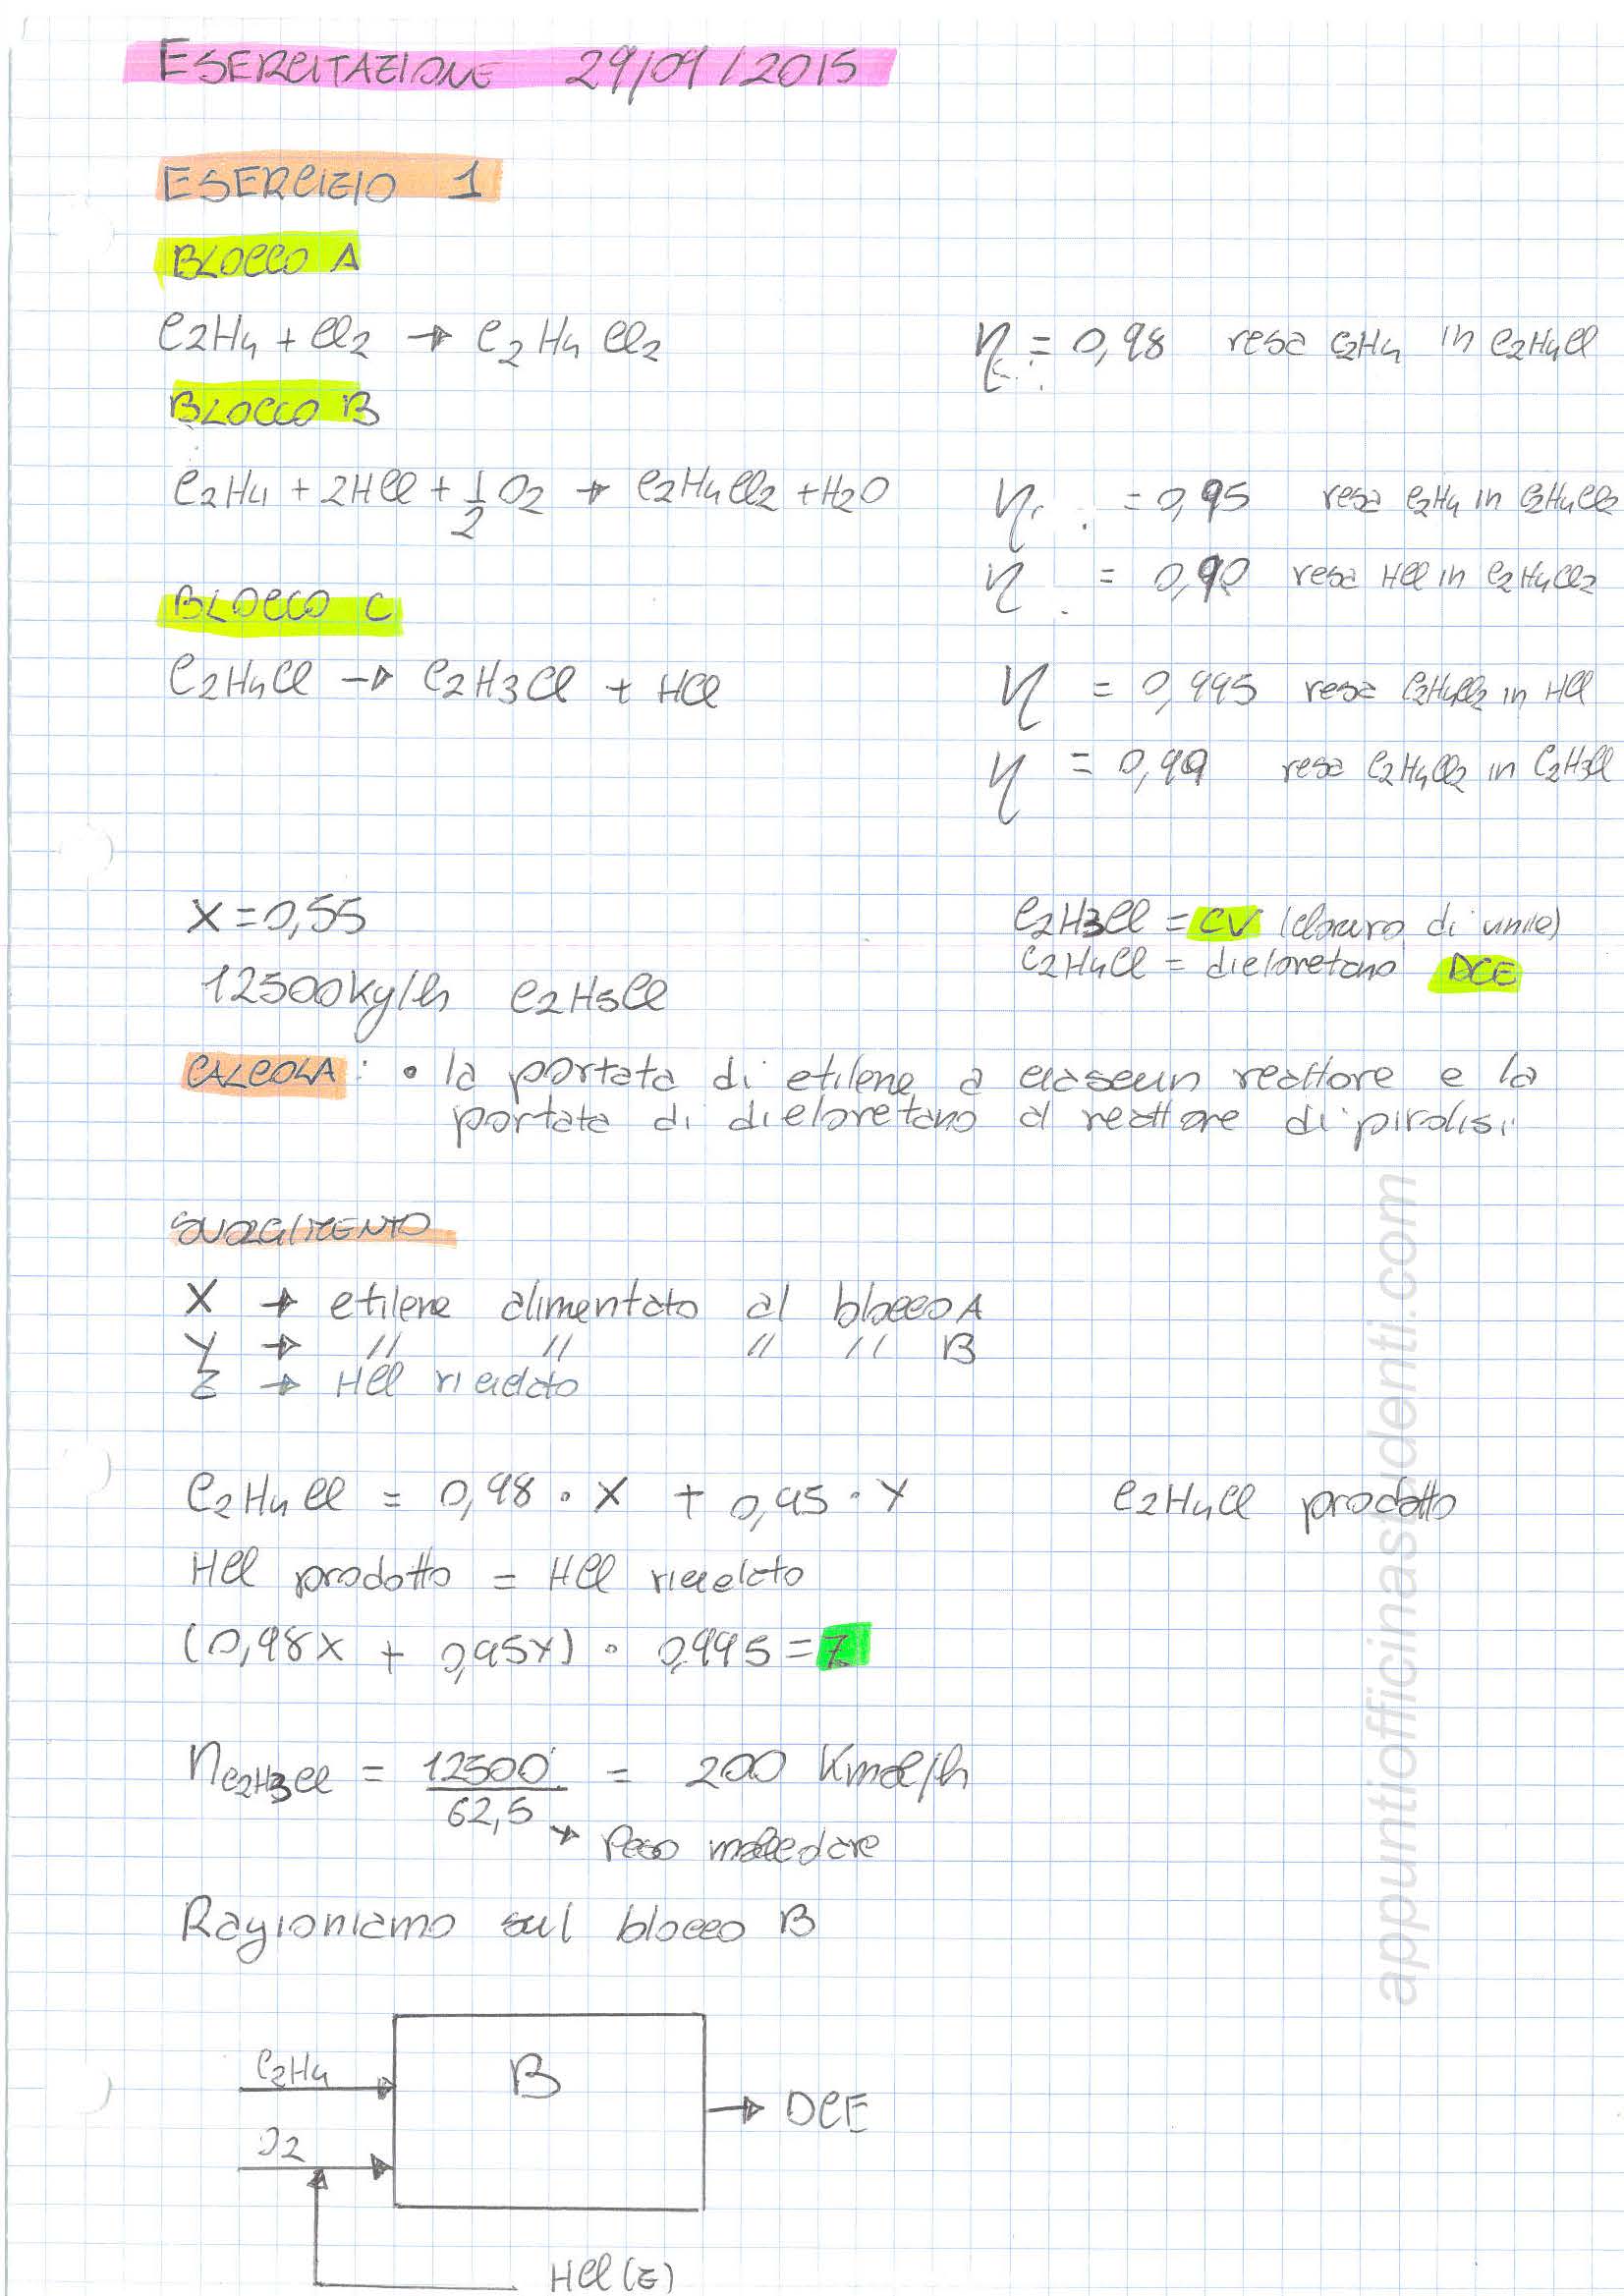 ESERCITAZIONE 29/09/2015
ESERCIZIO 1
BLOCCO A
C2H4 + Cl2 → C2H4Cl2 η = 0,98 resa C2H4 in C2H4Cl
BLOCCO B
C2H4 + 2HCl + 1/2 O2 → C2H4Cl2 + H2O η = 0,95 resa C2H4 in C2H4Cl2
η = 0,90 resa HCl in C2H4Cl2
BLOCCO C
C2H4Cl → C2H3Cl + HCl η = 0,995 resa C2H4Cl2 in HCl
η = 0,99 resa C2H4Cl2 in C2H3Cl
X = 0,55
C2H3Cl = CV (cloruro di vinile)
C2H4Cl = dicloretano DCE
12500 kg/h C2H3Cl
CALCOLA: • la portata di etilene a ciascun reattore e la
portata di dicloretano al reattore di pirolisi
SVOLGIMENTO
X → etilene alimentato al blocco A
Y → " " " " B
Z → HCl riciclato
C2H4Cl = 0,98 · X + 0,95 · Y C2H4Cl prodotto
HCl prodotto = HCl riciclato
(0,98X + 0,95Y) · 0,995 = Z
nC2H3Cl = 12500/62,5 = 200 Kmol/h
→ Peso molecolare
Ragioniamo sul blocco B
C2H4
B
→ DCE
O2
HCl (Z)
appuntiofficinastudenti.com